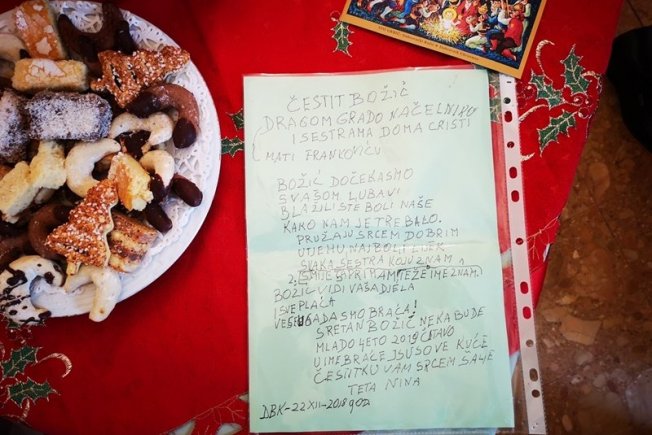 ČESTIT BOŽIĆ
DRAGOM GRADONAČELNIKU
I SESTRAMA DOMA CRISTI
MATI FRANKOVIĆU
BOŽIĆ DOČEKASMO
S VAŠOM LJUBAVI
BLAŽILI STE BOLI NAŠE
KAKO NAM JE TREBALO.
PRUŽAJU SRCEM DOBRIM
UTJEHU NAJBOLJI LJEK
SVAKA SESTRA KOJU ZNAM
BOŽIĆ VIDI VAŠA DJELA
I SVE PLAĆA
DA SMO BRAĆA!
SRETAN BOŽIĆ NEKA BUDE
MLADO LJETO 2019 ČITAVO
U IME BRAĆE ISUSOVE KUĆE
ČESTITKU VAM SRCEM ŠALJE
TETA NINA
DBK-22 XII-2018 GOD